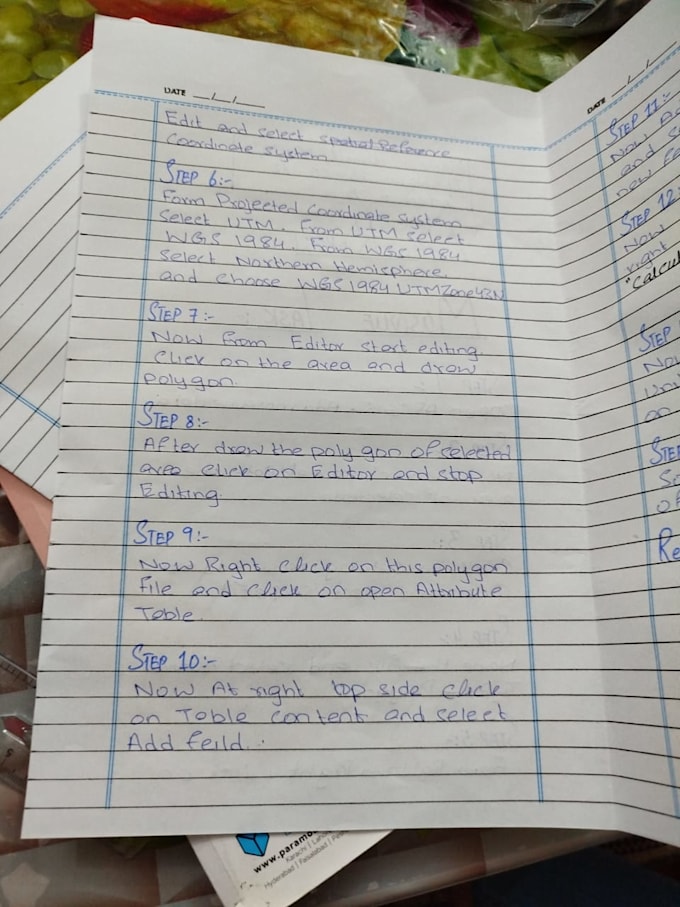 DATE __/__/__
Edit and select spatial Reference
Coordinate system
STEP 6:-
Form Projected Coordinate system
select UTM. From UTM select
WGS 1984. From WGS 1984
select Northern Hemisphere
and choose WGS 1984 UTM Zone 43N
STEP 7:-
Now from Editor start editing.
Click on the area and draw
polygon.
STEP 8:-
After draw the polygon of selected
area click on Editor and stop
Editing.
STEP 9:-
Now Right click on this polygon
file and click on open Attribute
Table.
STEP 10:-
Now At right top side click
on Table content and select
Add feild.
DATE __/__/__
STEP 11:-
Now
and
new
STEP 12:
Now
right
"Calcul
STEP
No
on
STEP
So
of
Re
www.paramo
Karachi | Laho
Hyderabad | Faisalabad |